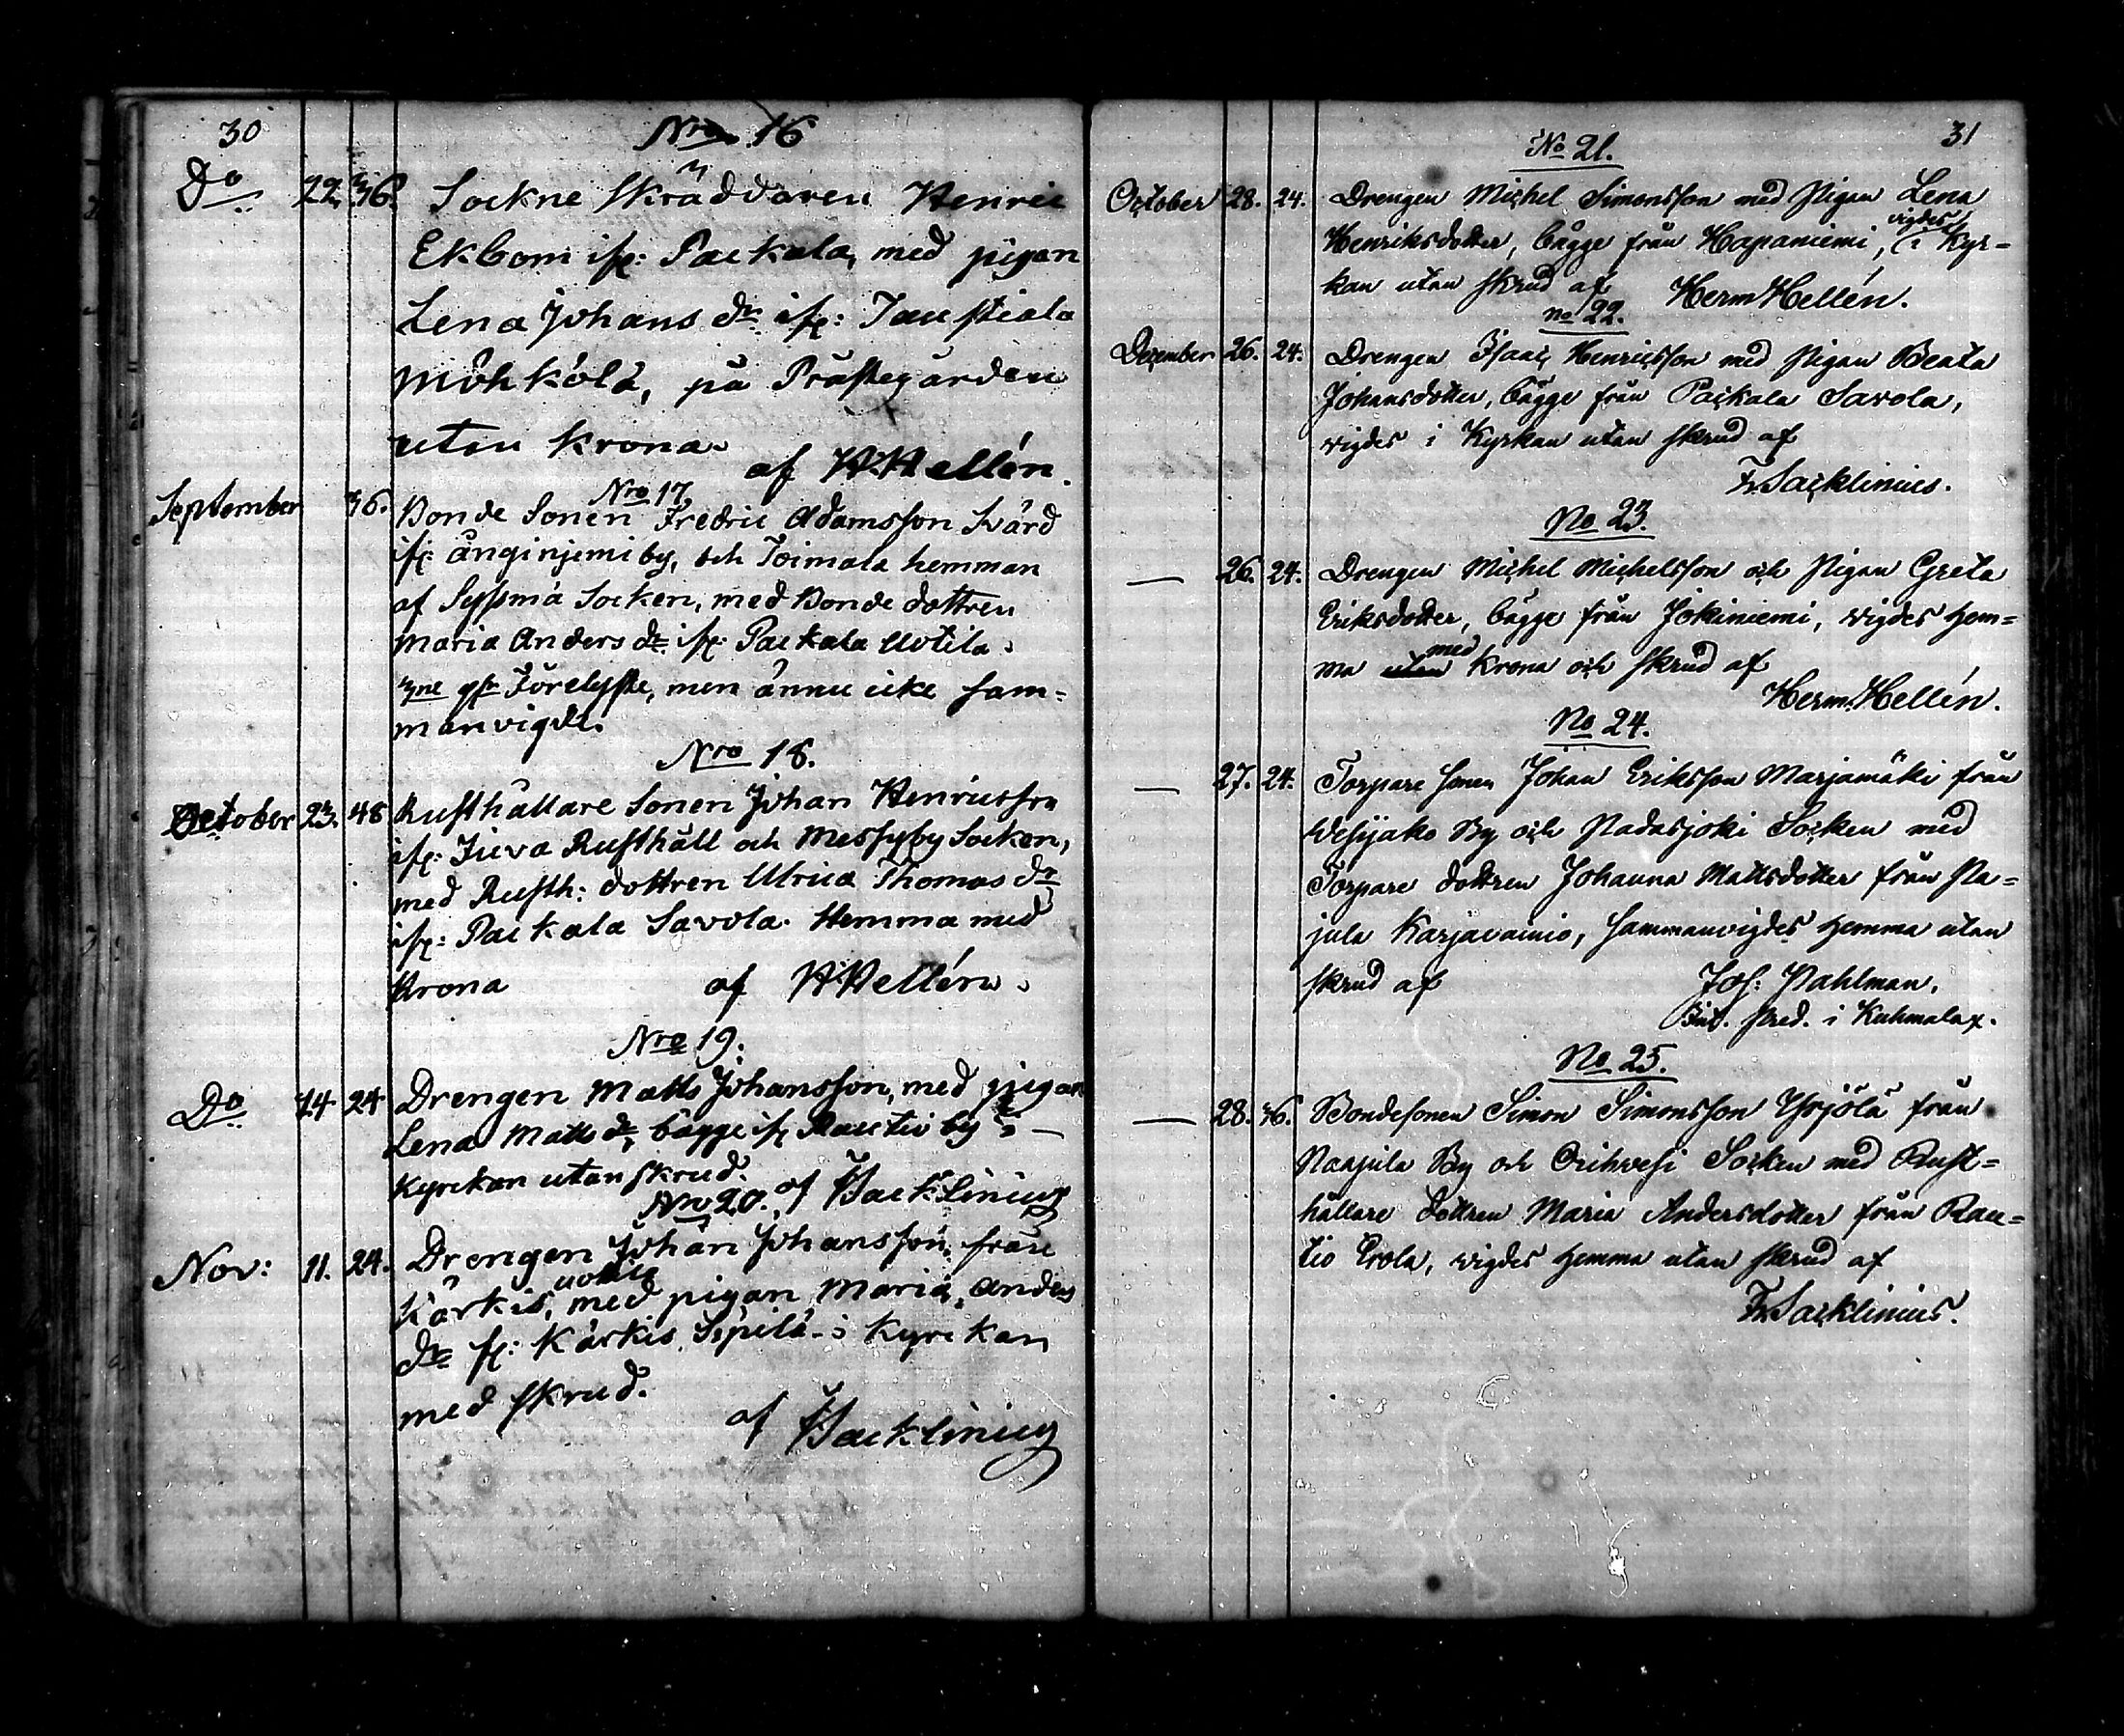 30
Nro 16
Do 22. 36. Sockne Skräddaren Henric
Ekbom ifr: Packala, med pigan
Lena Johans dr ifr: Taustiala
Möhkölä, på Prästegården
utan Krona.
af HHellén.
Nro 17.
September 36. Bonde Sonen Fredric Adamsson Svärd
ifr: ånginjemi by, och Toimala hemman
af Syssmä Socken, med Bonde dottren
Maria Anders dr ifr: Packala Uotila.
3ne gr Förelyste, men ännu icke sam-
manvigde.
Nro 18.
October 23. 48 Rusthållare Sonen Johan Henricsson
ifr: Rusthåll och Messuby Socken,
med Rusth: dottren Ulrica Thomas dr
ifr: Packala Savola. Hemma med
Krona af HHellén.
Nro 19.
Do 14 24 Drengen Matts Johansson, med pigan
Lena Matts dr, bägge ifr Rautio by i
Kyrckan utan skrud.
Nro 20. af Sacklinius
Nov: 11. 24. Drengen Johan Johansson från
Kärkis, uotila med pigan Maria Anders
dr fr: Kärkis Sipilä i Kyrckan
med skrud.
af Sacklinius
31
No 21.
October 28. 24. Drengen Michel Simonsson med Pigan Lena
Henriksdotter, bägge från Hapaniemi, vigdes i Kyr-
kan utan skrud af Herm Hellén.
No 22.
December 26. 24. Drengen Isaac Henricsson med Pigan Beata
Johansdotter, bägge från Packala Savola,
vigdes i Kyrkan utan skrud af
Fr Sacklinius.
No 23.
— 26. 24. Drengen Michel Michelsson och Pigan Greta
Eriksdotter, bägge från Jokiniemi, vigdes hem-
ma utan med Krona och skrud af
Herm. Hellén.
No 24.
— 27. 24. Torpare sonen Johan Eriksson Marjamäki från
Wesijako By och Padasjoki Socken med
Torpare dottren Johanna Mattsdotter från Pa-
jula Karjavainio, sammanvigdes hemma utan
skrud af Jos: Pahlman,
Pred. i Kuhmalax.
No 25.
— 28. 36. Bondesonen Simon Simonsson Yrjölä från
Naajula By och Orihvesi Socken med Rust-
hållare dottren Maria Andersdotter från Rau-
tio Erola, vigdes hemma utan skrud af
Fr Sacklinius.